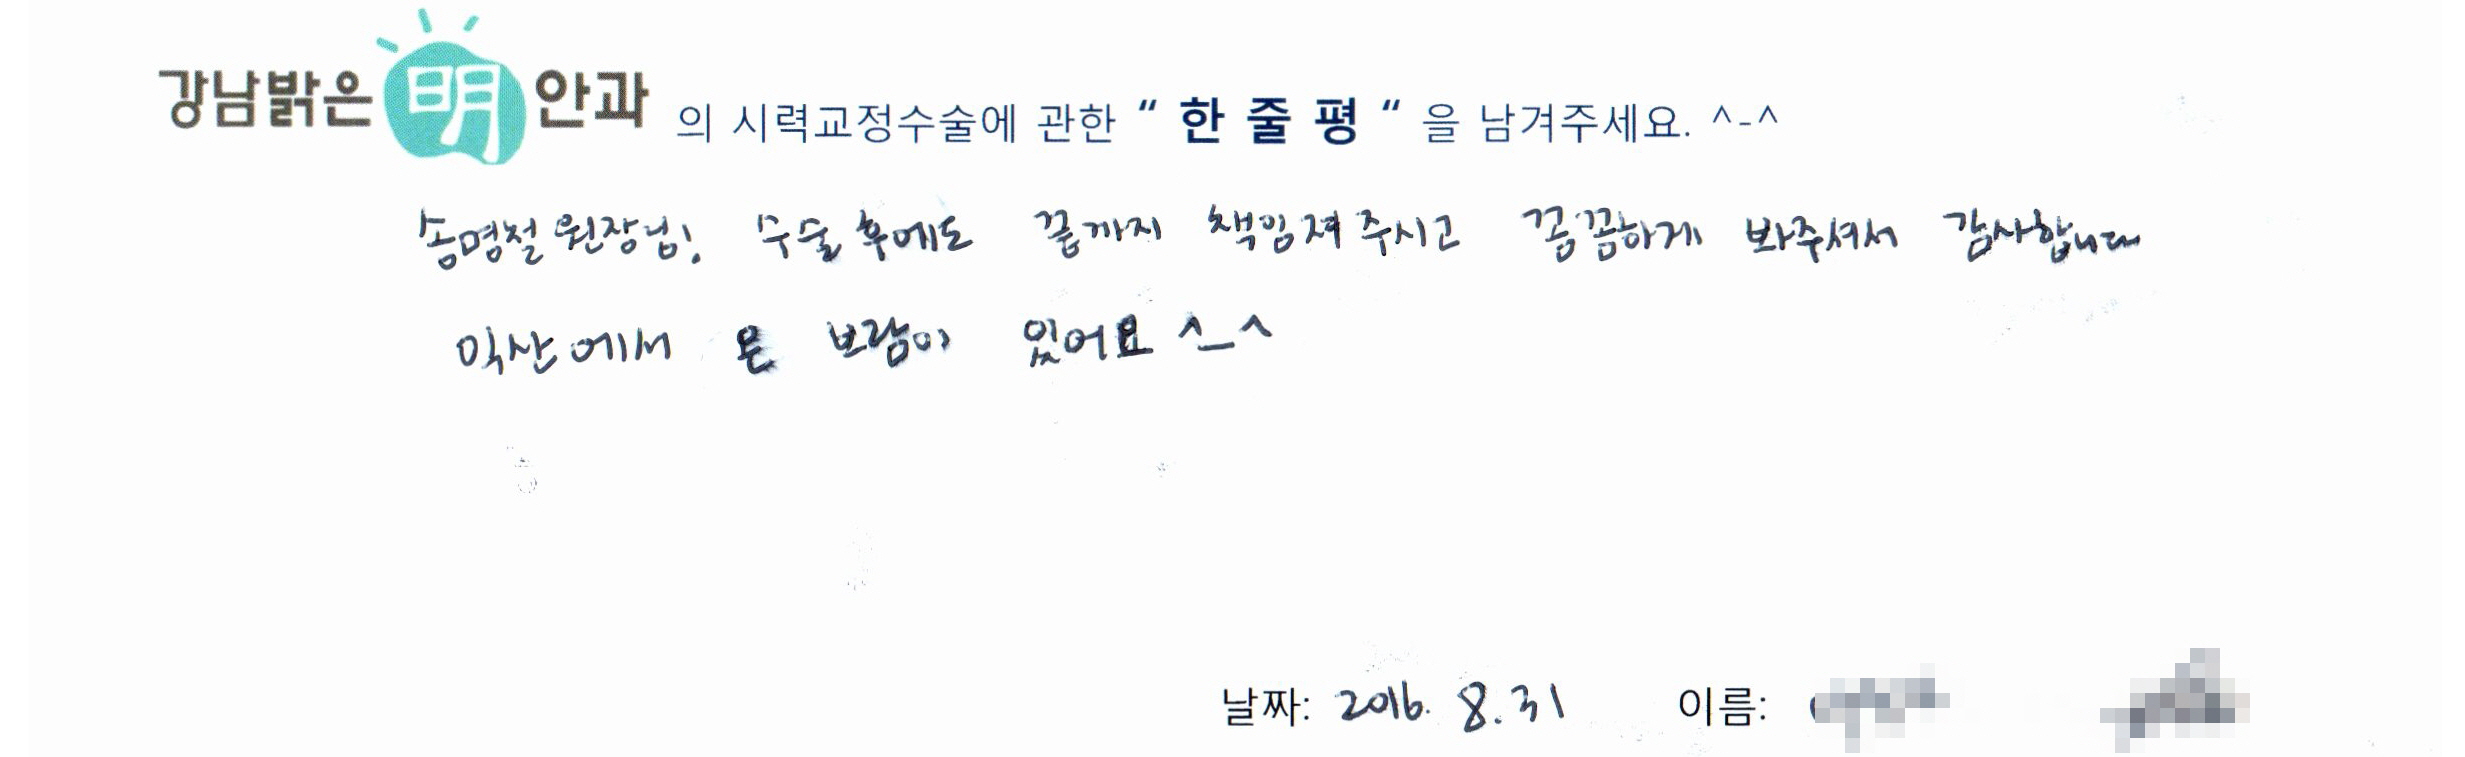 강남밝은 明 안과 의 시력교정수술에 관한 “ 한 줄 평 “ 을 남겨주세요. ^-^
송명철 원장님! 수술 후에도 끝까지 책임져 주시고 꼼꼼하게 봐주셔서 감사합니다
익산에서 온 보람이 있어요 ^_^
날짜: 2016. 8. 31 이름: